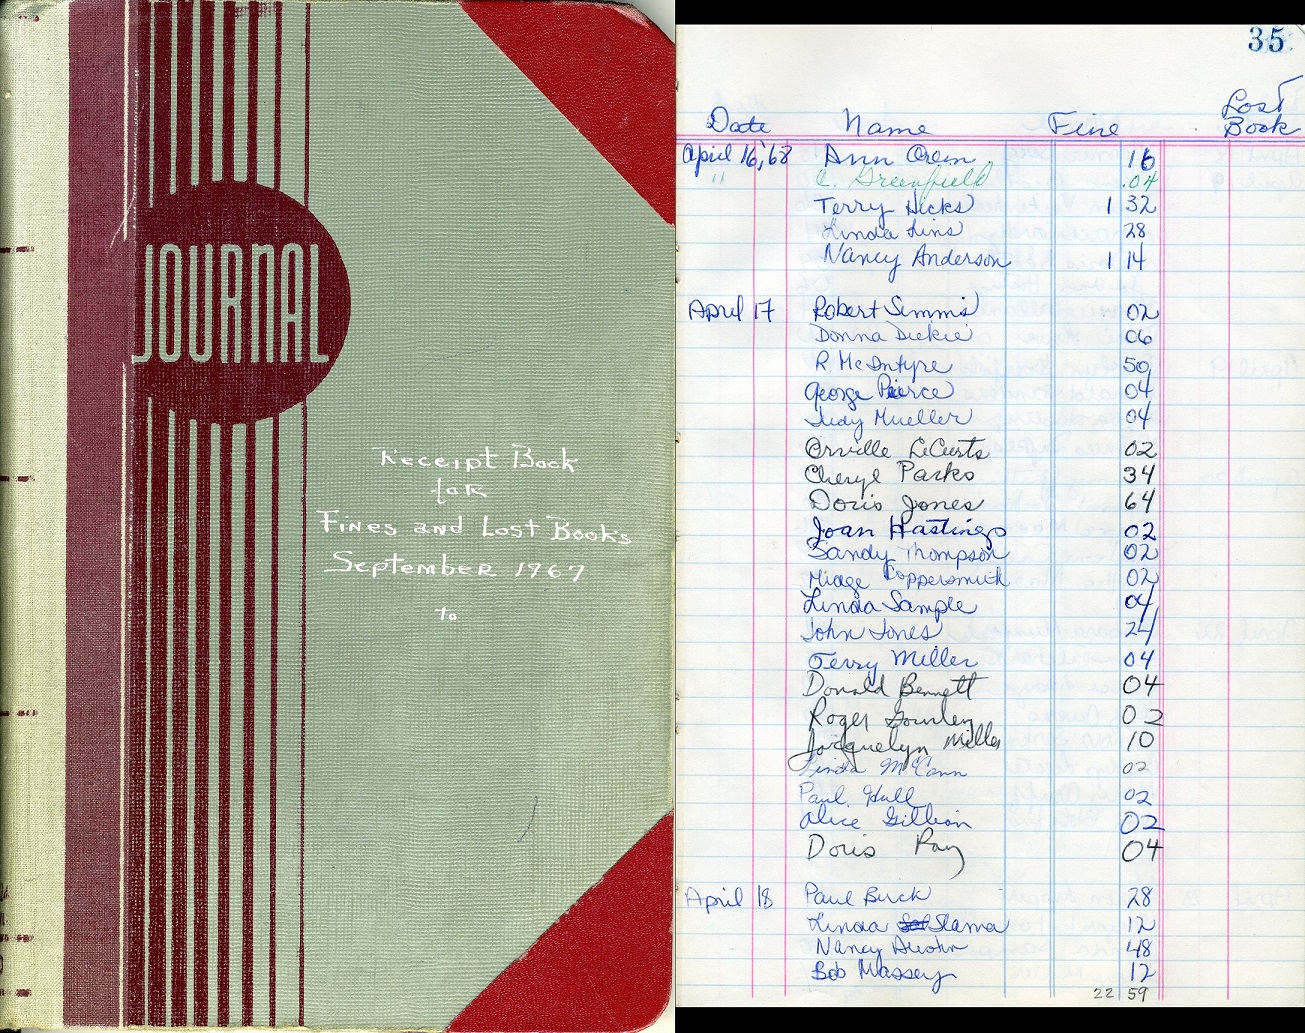 JOURNAL
Receipt Book
for
Fines and Lost Books
September 1967
to
35
Lost
Date Name Fine Book
April 16, '68 Ann Orem 16
" C. Greenfield .04
Terry Hicks 1 32
Linda Lins 28
Nancy Anderson 1 14
April 17 Robert Simms 02
Donna Dickie 06
R. McIntyre 50
George Pierce 04
Judy Mueller 04
Orville LeCurts 02
Cheryl Parks 34
Doris Jones 64
Joan Hastings 02
Sandy Thompson 02
Midge Coppersmith 02
Linda Sample 04
John Jones 24
Terry Miller 04
Donald Bennett 04
Roger Gourley 02
Jacquelyn Miller 10
Linda McCann 02
Paul Hull 02
Alice Gillion 02
Doris Ray 04
April 18 Paul Burck 28
Linda Slama 12
Nancy 48
Bob Massey 12
22 59